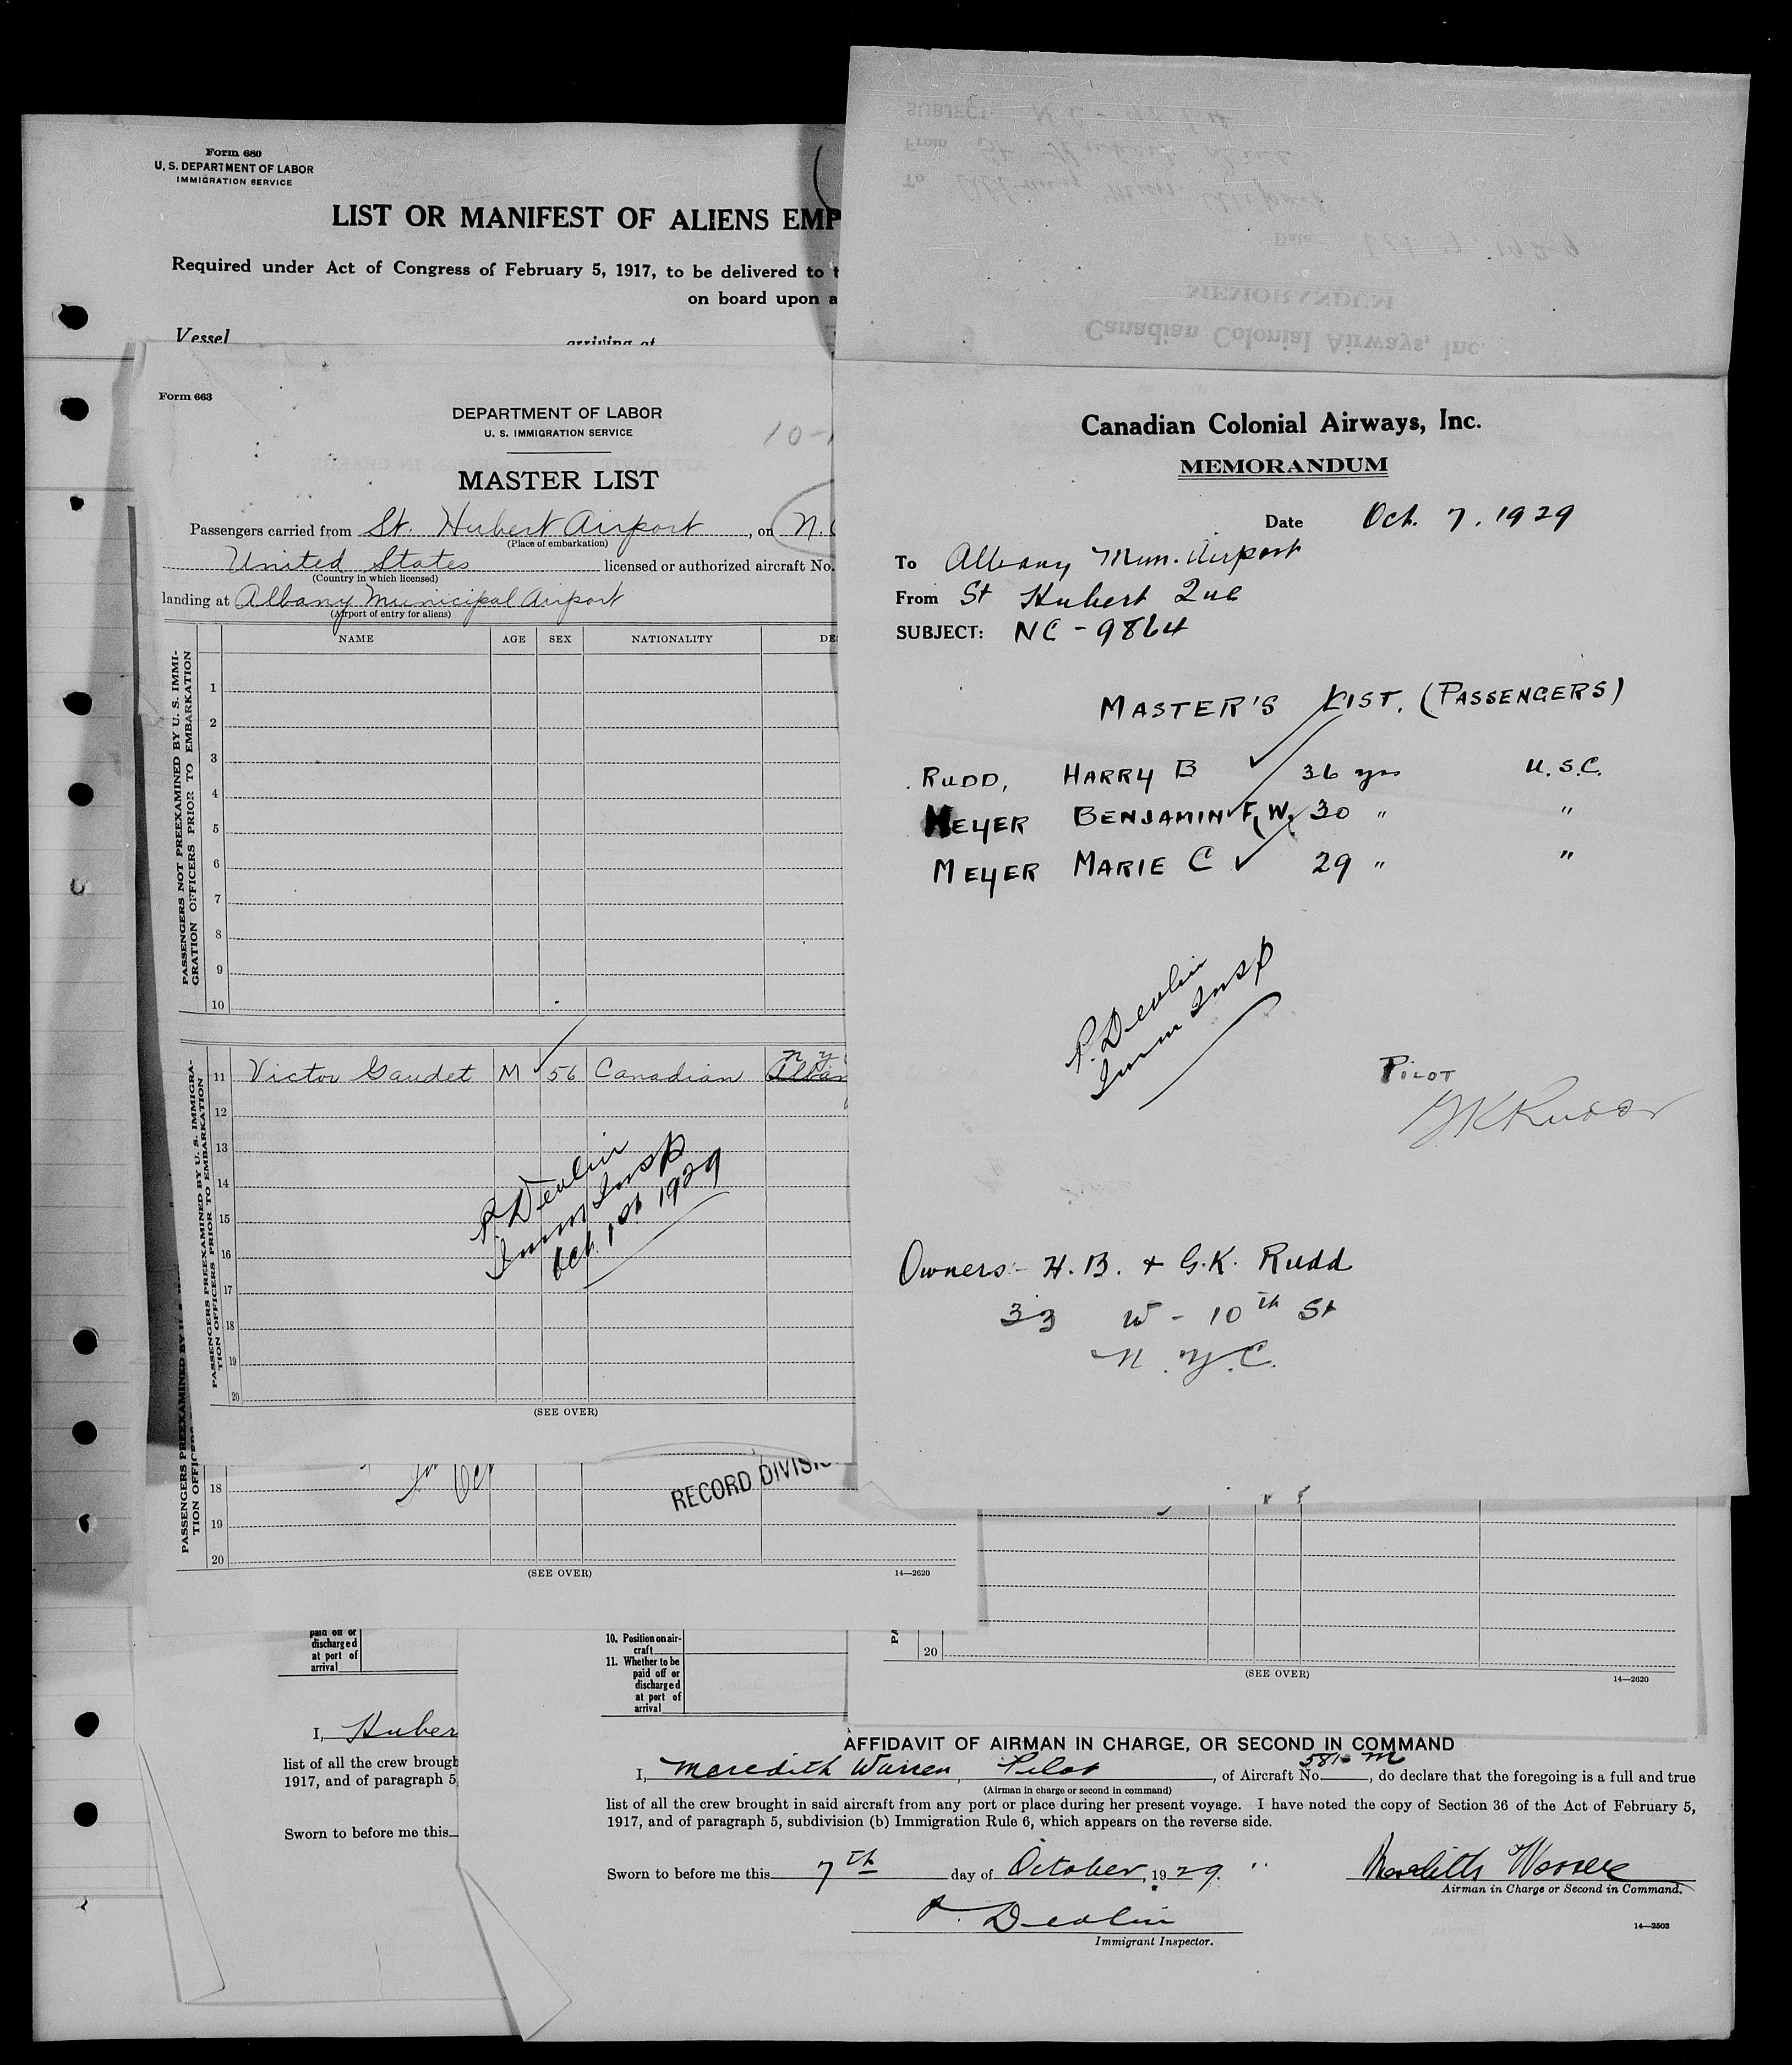 Form 680
U. S. DEPARTMENT OF LABOR
IMMIGRATION SERVICE
LIST OR MANIFEST OF ALIENS EMP
Required under Act of Congress of February 5, 1917, to be delivered to t
on board upon a
Vessel
arriving at
Form 663
DEPARTMENT OF LABOR
U. S. IMMIGRATION SERVICE
10-1
MASTER LIST
Passengers carried from St. Hubert Airport, on N.C
(Place of embarkation)
United States licensed or authorized aircraft No.
(Country in which licensed)
landing at Albany Municipal Airport
(Airport of entry for aliens)
NAME AGE SEX NATIONALITY DE
PASSENGERS NOT PREEXAMINED BY U. S. IMMI-
GRATION OFFICERS PRIOR TO EMBARKATION
1
2
3
4
5
6
7
8
9
10
PASSENGERS PREEXAMINED BY U. S. IMMIGRA-
TION OFFICERS PRIOR TO EMBARKATION
N Y
11 Victor Gaudet M 56 Canadian Alban
12
13
14
15
16
17
18
19
20
P. Devlin
Imm Insp
Oct. 1st 1929
(SEE OVER)
PASSENGERS PREEXAMINED BY U. S.
TION OFFICERS
RECORD DIVISI
18
19
20
(SEE OVER)
14—2620
Canadian Colonial Airways, Inc.
MEMORANDUM
Date Oct. 7, 1929
To Albany Mun. Airport
From St Hubert Que
SUBJECT: NC-9864
MASTER'S LIST. (PASSENGERS)
RUDD, HARRY B ✓ 36 yrs U.S.C.
MEYER BENJAMIN ✓ F. W. 30 " "
MEYER MARIE C ✓ 29 " "
P. Devlin
Imm Insp
PILOT
GKRudd
Owners:- H.B. + G.K. Rudd
33 W - 10th St
N.Y.C.
20
(SEE OVER)
14—2620
paid off or
discharged
at port of
arrival
10. Position on air-
craft
11. Whether to be
paid off or
discharged
at port of
arrival
I, Huber
list of all the crew brough
1917, and of paragraph 5,
Sworn to before me this
AFFIDAVIT OF AIRMAN IN CHARGE, OR SECOND IN COMMAND
I, Meredith Warren, Pilot, of Aircraft No. 581-M, do declare that the foregoing is a full and true
(Airman in charge or second in command)
list of all the crew brought in said aircraft from any port or place during her present voyage. I have noted the copy of Section 36 of the Act of February 5,
1917, and of paragraph 5, subdivision (b) Immigration Rule 6, which appears on the reverse side.
Sworn to before me this 7th day of October, 1929.
Meredith Warren
Airman in Charge or Second in Command.
P. Devlin
Immigrant Inspector.
14—2503